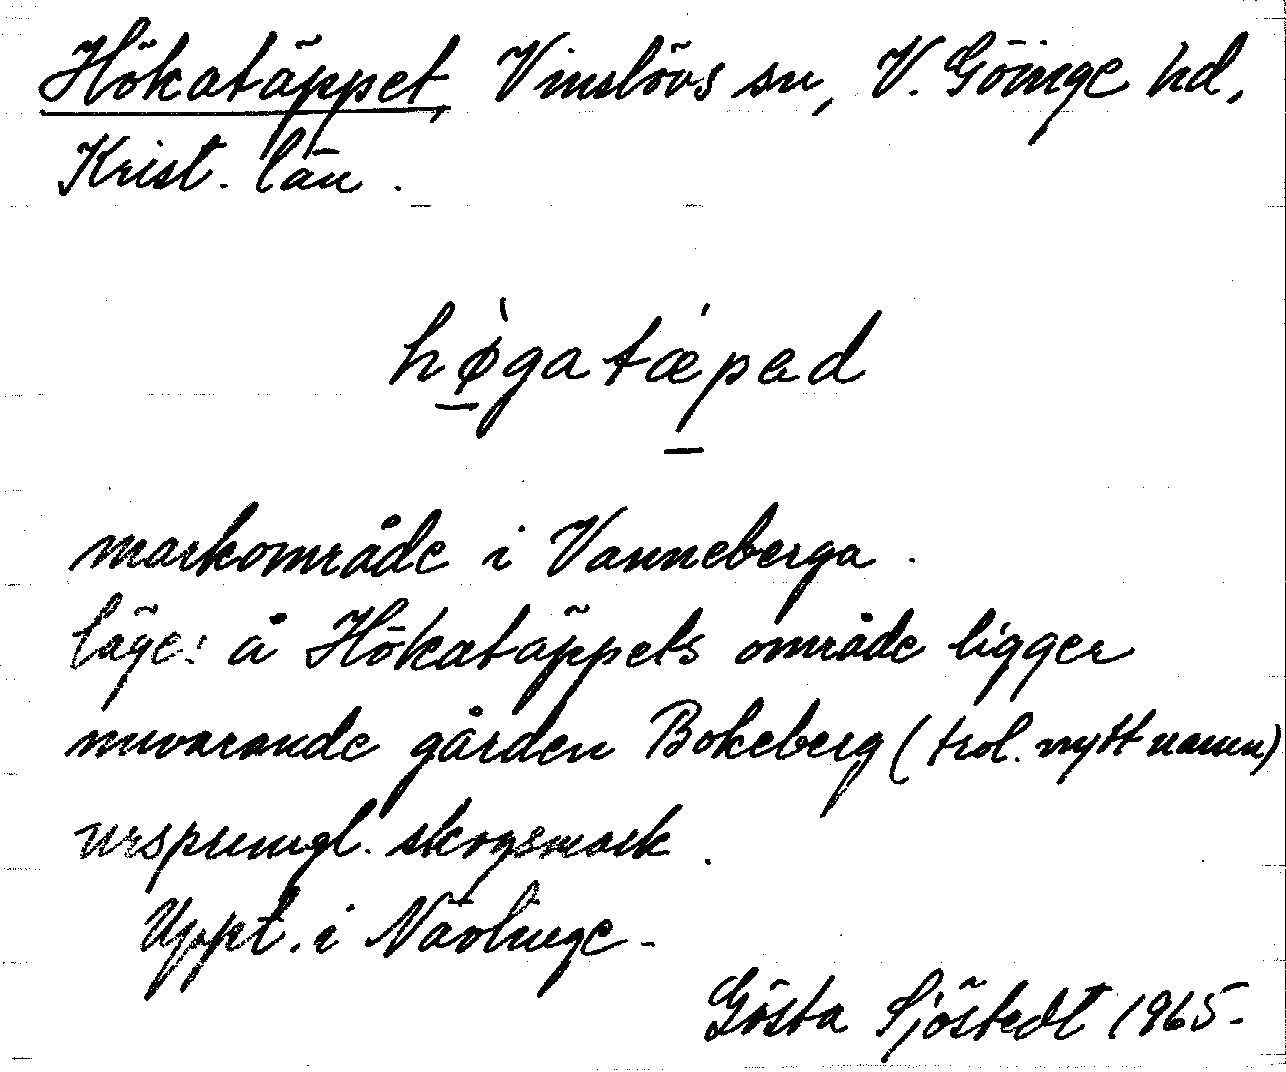 Hökatäppet, Vinslövs sn, V. Göinge hd,
Krist. län.
hø̀gatǽpad
markområde i Vanneberga.
läge: å Hökatäppets område ligger
nuvarande gården Bokeberg (trol. nytt namn)
ursprungl. skogsmark.
Uppt. i Nävlinge.
Gösta Sjöstedt 1965.